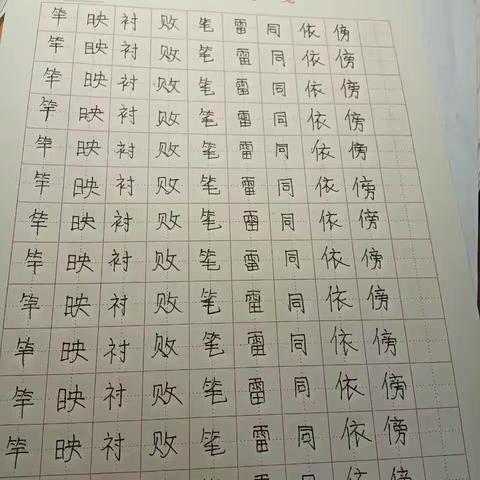 竿 映 衬 败 笔 雷 同 依 傍
竿 映 衬 败 笔 雷 同 依 傍
竿 映 衬 败 笔 雷 同 依 傍
竿 映 衬 败 笔 雷 同 依 傍
竿 映 衬 败 笔 雷 同 依 傍
竿 映 衬 败 笔 雷 同 依 傍
竿 映 衬 败 笔 雷 同 依 傍
竿 映 衬 败 笔 雷 同 依 傍
竿 映 衬 败 笔 雷 同 依 傍
竿 映 衬 败 笔 雷 同 依 傍
竿 映 衬 败 笔 雷 同 依 傍
竿 映 衬 败 笔 雷 同 依 傍